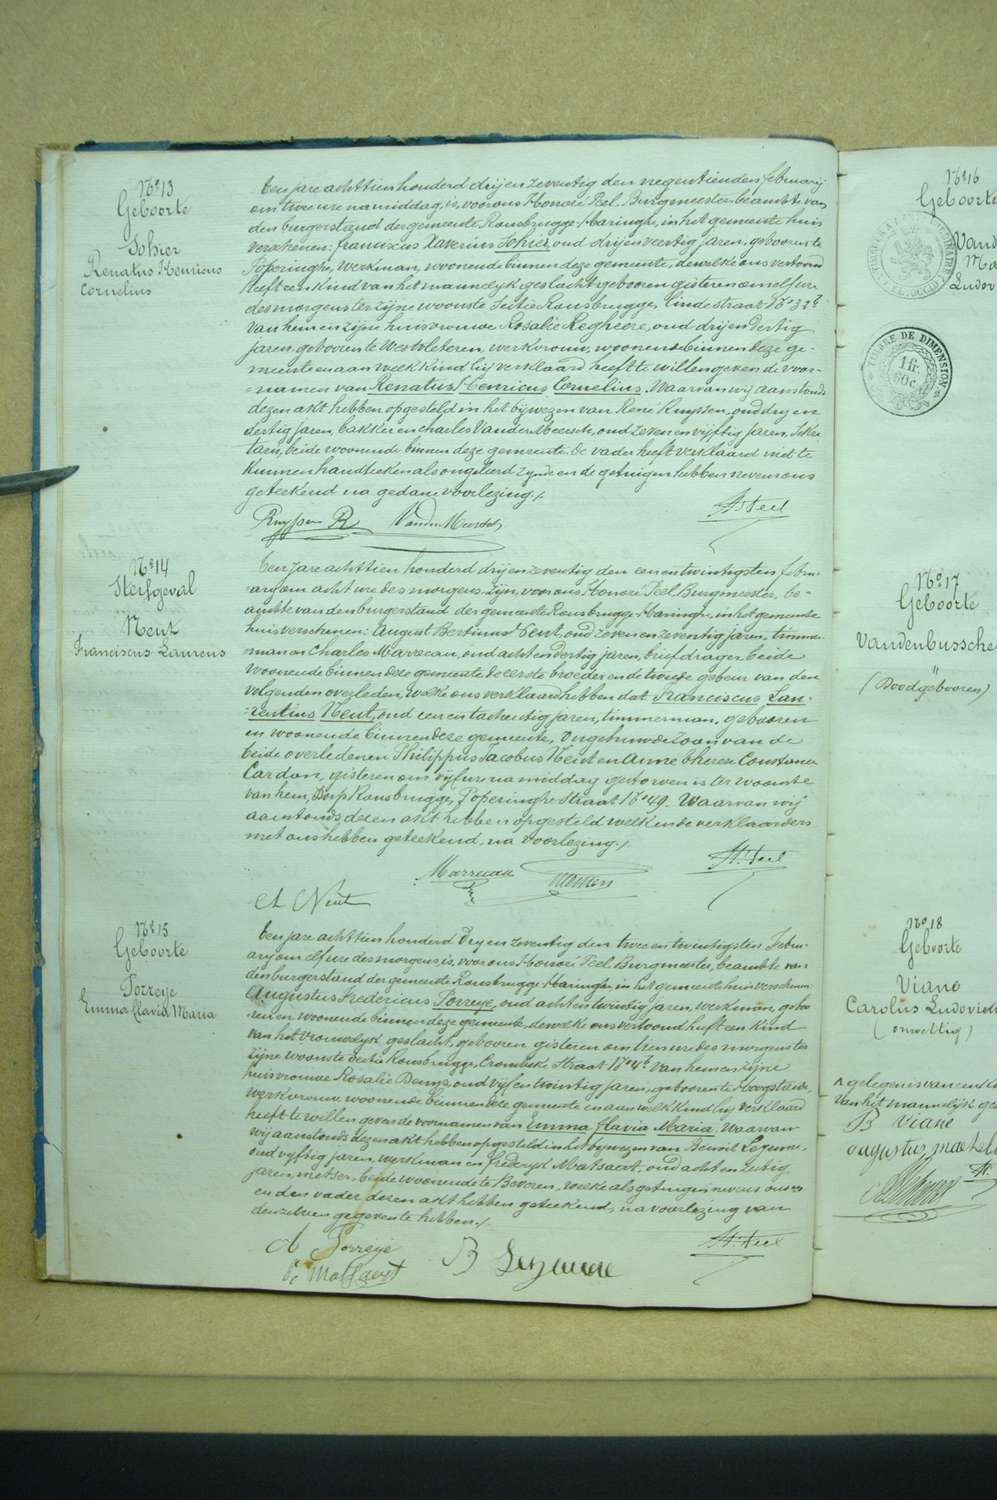 N° 13
Geboorte
Sohier
Renatus Henricus
Cornelius
Een jare achttien honderd drij en zeventig den negentienden february
om twee ure namiddag, is, voor ons Honoré Peel Burgmeester beambte van
den burgerstand der gemeente Rousbrugge-Haringhe, in het gemeente huis
verschenen: franciscus Xaverius Sohier, oud drij en veertig jaren, geboren te
Poperinghe, werkman, woonende binnen deze gemeente, dewelke ons vertoond
heeft een kind van het mannelijk geslacht, geboren gisteren om elf ure
des morgens ter zijne woonste Sectie Rousbrugge, Linde straat N° 32
van hem en zijne huisvrouwe Rosalie Regheere, oud drij en dertig
jaren, geboren te Westvleteren, werkvrouw, woonende binnen deze ge-
meente en aan welk kind hij verklaard heeft te willen geven de voor-
namen van Renatus Henricus Cornelius. Waarvan wij aanstonds
dezen akt hebben opgesteld in het bijwezen van René Ruyssen, oud drij en
dertig jaren, bakker en charles Vander Meersch, oud zeven en vijftig jaren,
beide woonende binnen deze gemeente. De vader heeft verklaard niet te
kunnen handteeken als ongeleerd zijnde en de getuigen hebben nevens ons
geteekend na gedane voorlezing./.
Ruyssen R
H. Peel
N° 14
Sterfgeval
Neut
Franciscus Laurens
Een jare achttien honderd drij en zeventig den een en twintigsten febru-
ary om acht ure des morgens, zijn, voor ons Honoré Peel Burgmeester, be-
ambte van den burgerstand der gemeente Rousbrugge-Haringhe, in het gemeente
huis verschenen: August Bertinus Neut, oud zeven en zeventig jaren, timmer-
man en Charles Marrecau, oud acht en dertig jaren, briefdrager, beide
woonende binnen deze gemeente de eerste broeder en de tweede gebuer van den
volgenden overleden, welke ons verklaard hebben dat Franciscus Lau-
rentius Neut, oud een en tachentig jaren, timmerman, geboren
en woonende binnen deze gemeente, ongehuwde zoon van de
beide overledenen Philippus Jacobus Neut en Anne therese Constance
Cardon, gisteren om vijf ure na middag gestorven is ter woonste
van hem, Dorp Rousbrugge, Poperinghe straat N° 49. Waarvan wij
aanstonds dezen akt hebben opgesteld welk en de verklaarders
met ons hebben geteekend, na voorlezing./.
Marrecau
H. Peel
A Neut
N° 15
Geboorte
Porreye
Emma flavia Maria
Een jare achttien honderd Drij en zeventig den twee en twintigsten Febru-
ary om elf ure des morgens, is, voor ons Honoré Peel Burgmeester, beambte van
den burgerstand der gemeente Rousbrugge-Haringhe, in het gemeente huis verschenen
Augustus Fredericus Porreye, oud acht en twintig jaren, werkman, gebo-
ren en woonende binnen deze gemeente, dewelke ons vertoond heeft een kind
van het vrouwelijk geslacht, geboren gisteren om tien ure des morgens ter
zijne woonste sectie Rousbrugge, Crombeke Straat N° 4 van hem en zijne
huisvrouwe Rosalie Deuys, oud vijf en twintig jaren, geboren te Hoogstaede
werkvrouw, woonende binnen deze gemeente en aan welk kind hij verklaard
heeft te willen geven de voornamen van Emma flavia Maria. Waarvan
wij aanstonds dezen akt hebben opgesteld in het bijwezen van Benoit
oud vyftig jaren, werkman en frederyk Matsaert, oud acht en zestig
jaren, metser, beide woonende te Beveren, welke als getuigen nevens ons
en den vader dezen akt hebben geteekend, na voorlezing van
denzelven gegeven te hebben./.
A Porreye
H. Peel
N° 16
Geboorte
TIMBRE DE DIMENSION
1 fr.
60 c.
N° 17
Geboorte
Vandenbussche
"
(Doodgeboren)
N° 18
Geboorte
Viane
Carolus Ludovicus
(onwettig)
B Viane